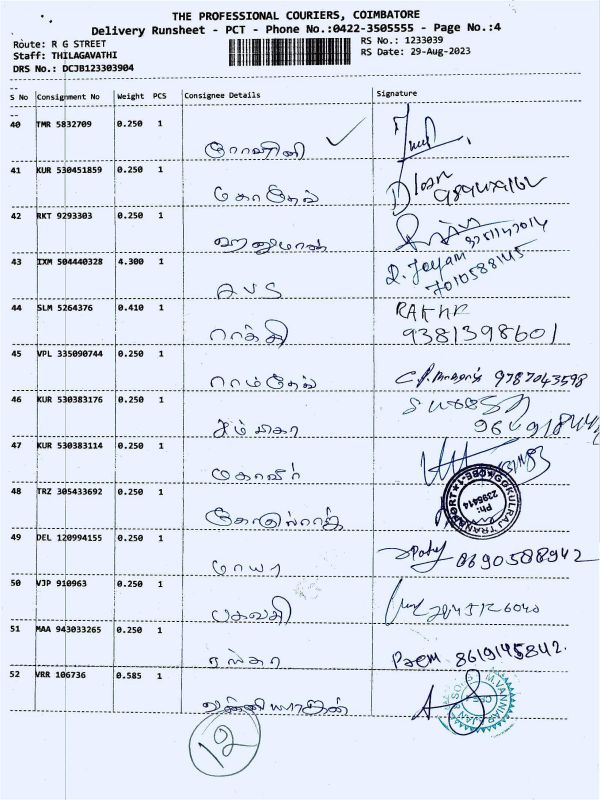 THE PROFESSIONAL COURIERS, COIMBATORE
Delivery Runsheet - PCT - Phone No.:0422-3505555 - Page No.:4
Route: R G STREET
RS No.: 1233039
Staff: THILAGAVATHI
RS Date: 29-Aug-2023
DRS No.: DCJB123303904
--
S No Consignment No Weight PCS Consignee Details Signature
--
40 TMR 5832709 0.250 1
41 KUR 530451859 0.250 1
மகாதேவ்
42 RKT 9293303 0.250 1
ஹனுமான்
43 IXM 504440328 4.300 1
R. Jeyam
7010588145
AVS
44 SLM 5264376 0.410 1
ராக்கி
9381398601
45 VPL 335090744 0.250 1
ராம்தேவ் 9787043598
46 KUR 530383176 0.250 1
47 KUR 530383114 0.250 1
மகாவீர்
48 TRZ 305433692 0.250 1
கோகுல்ராஜ்
GOKULRAJ TRANSPORT
Ph: 2395414
49 DEL 120994155 0.250 1
மாயா 8690588942
50 VJP 910963 0.250 1
பகவதி
51 MAA 943033265 0.250 1
Prem 8619145842.
52 VRR 106736 0.585 1
வன்னியராஜன்
12